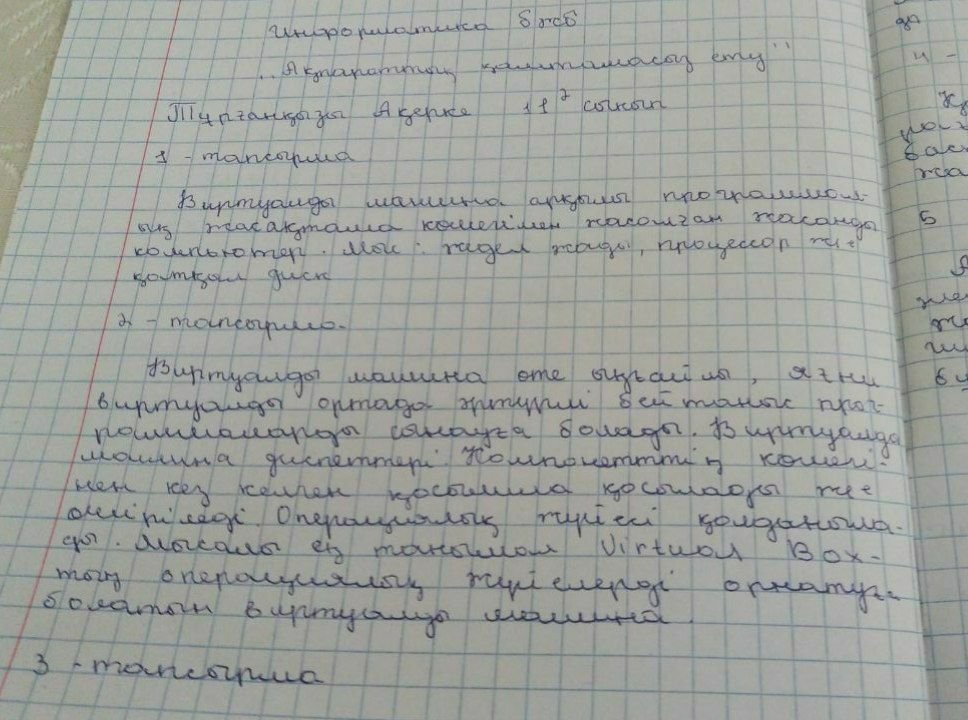 Информатика бжб
"Ақпараттық қамтамасыз ету"
Тұрғанқызы Ақерке 11² сынып
1 - тапсырма
Виртуалды машина арқылы программал-
ық жасақтама көмегімен жасалған жасанды
компьютер. Мыс: жедел жады, процессор ж-е
қатқыл диск
2 - тапсырма.
Виртуалды машина өте ыңғайлы, яғни
виртуалды ортада әртүрлі бейтаныс прог-
раммаларды сынауға болады. Виртуалда
машина диспеттері. Компонеттің көмегі-
нен кез келген қосымша қосылады ж-е
өшіріледі. Операциялық жүйесі қолданыла-
ды. Мысалы ең танымал Virtual Box-
тың операциялық жүйелерді орнатуғ-
болатын виртуалды машина.
3 - тапсырма
до
4 -
5